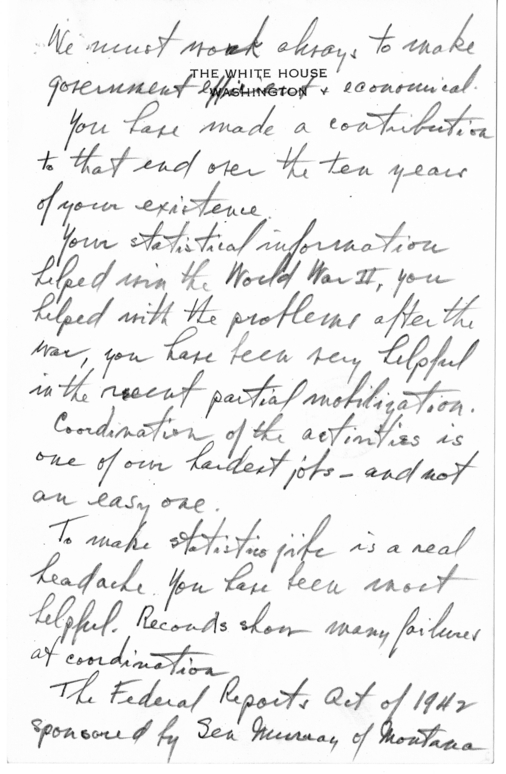 We must work always to make
THE WHITE HOUSE
government efficient & economical.
WASHINGTON
You have made a contribution
to that end over the ten years
of your existence.
Your statistical information
helped win the World War II, you
helped with the problems after the
war, you have been very helpful
in the recent partial mobilization.
Coordination of the activities is
one of our hardest jobs – and not
an easy one.
To make statistics jibe is a real
headache. You have been most
helpful. Records show many failures
at coordination
The Federal Reports Act of 1942
sponsored by Sen Murray of Montana